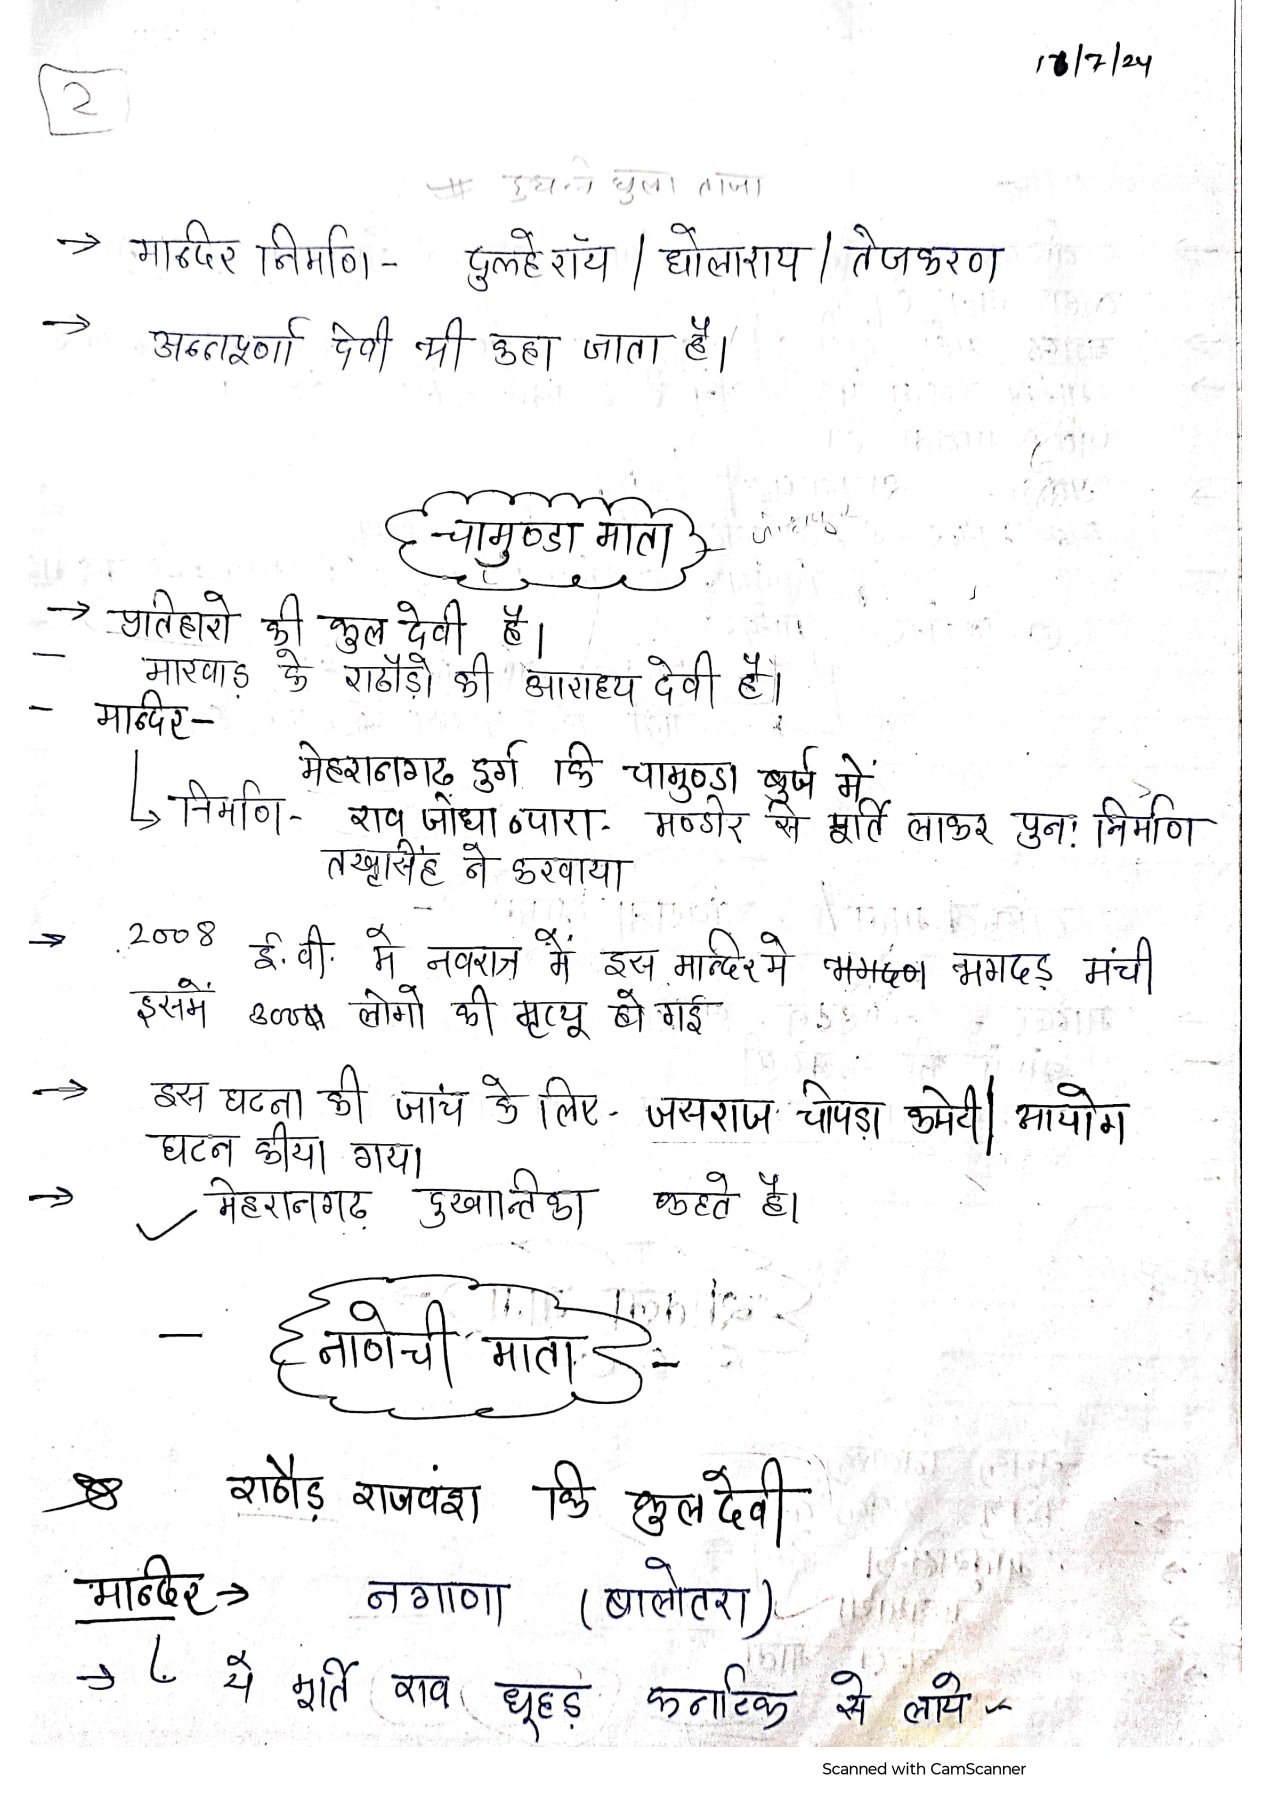 2
18/7/24
→ मन्दिर निर्माण - दुलहेरॉय / धोलाराय / तेजकरण
→ अन्नपूर्णा देवी भी कहा जाता है।
चामुण्डा माता -
→ प्रतिहारो की कुल देवी है।
- मारवाड़ के राठौड़ो की आराध्य देवी है।
- मन्दिर -
मेहरानगढ़ दुर्ग कि चामुण्डा बुर्ज में
↳ निर्माण - राव जोधा व्दारा - मण्डोर से मूर्ति लाकर पुनः निर्माण
तख्तसिंह ने करवाया
→ 2008 ई.वी. मे नवरात्र में इस मन्दिर मे भगदड़ मंची
इसमें लोगो की मृत्यू हो गई
→ इस घटना की जांच के लिए - जसराज चोपड़ा कमेटी / आयोग
घटन कीया गया
→ मेहरानगढ़ दुखान्तिका कहते है।
- नाणेची माता -
राठौड़ राजवंश कि कुल देवी
मन्दिर → नगाणा (बालोतरा)
→ ये मूर्ति राव धूहड़ कर्नाटक से लाये -
Scanned with CamScanner